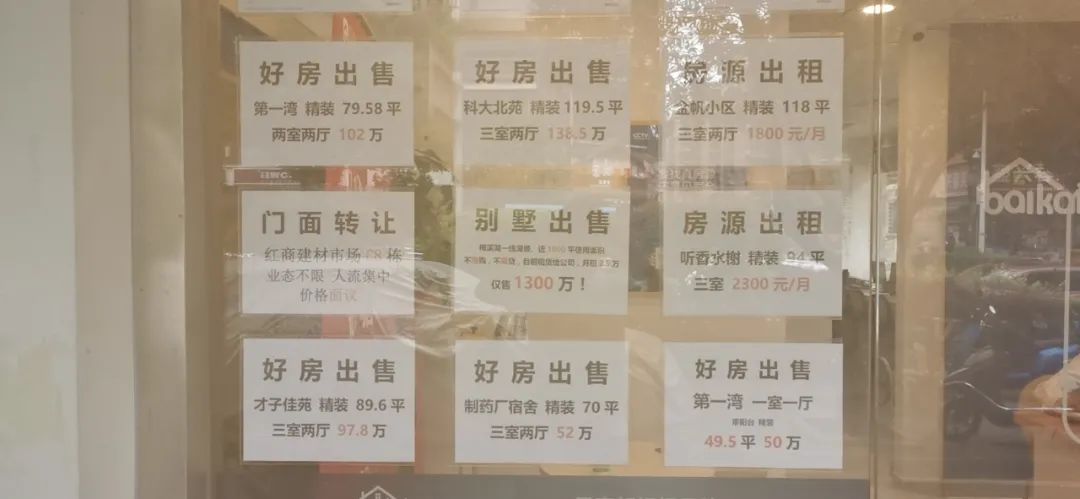 好房出售
第一湾 精装 79.58 平
两室两厅 102 万
好房出售
科大北苑 精装 119.5 平
三室两厅 138.5 万
房源出租
金帆小区 精装 118 平
三室两厅 1800 元/月
门面转让
红商建材市场 C8 栋
业态不限 人流集中
价格面议
别墅出售
梅溪湖一线湖景，近 1000 平使用面积
不限购，不限贷，目前租赁给公司，月租
仅售 1300 万！
房源出租
听香水榭 精装 94 平
三室 2300 元/月
好房出售
才子佳苑 精装 89.6 平
三室两厅 97.8 万
好房出售
制药厂宿舍 精装 70 平
三室两厅 52 万
好房出售
第一湾 一室一厅
带阳台 精装
49.5 平 50 万
baikat